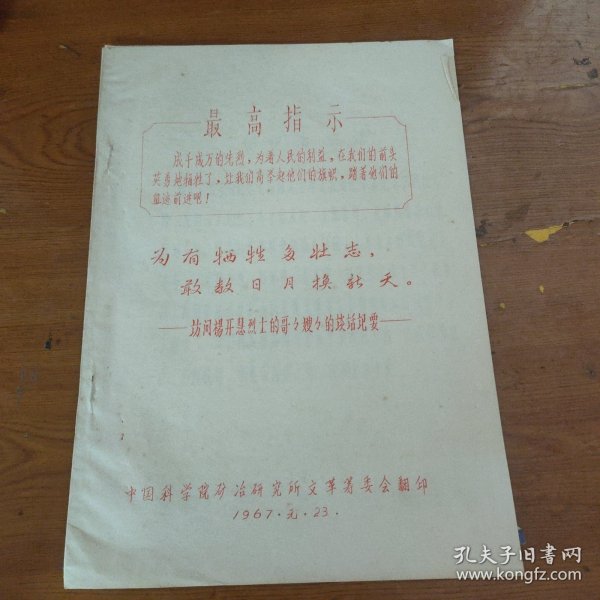 最高指示
成千成万的先烈，为着人民的利益，在我们的前头
英勇地牺牲了，让我们高举起他们的旗帜，踏着他们的
血迹前进吧！
为有牺牲多壮志，
敢教日月换新天。
——访问杨开慧烈士的哥々嫂々的谈话纪要——
中国科学院矿冶研究所文革筹委会翻印
1967.元.23.
孔夫子旧书网
www.kongfz.com